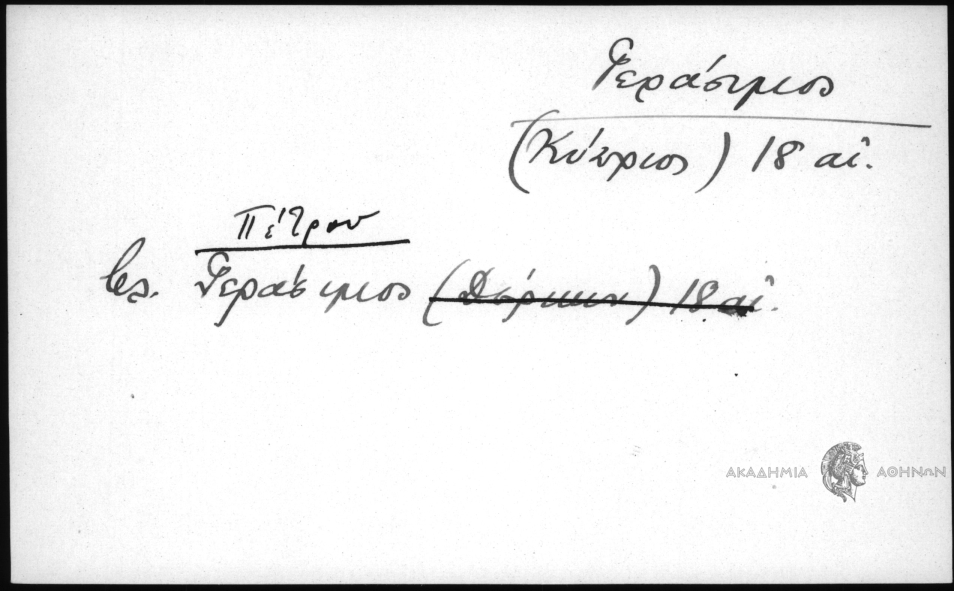 Γεράσιμος
(Κύπριος) 18 αἰ.
Πέτρου
βλ. Γεράσιμος (Δέρκων) 18 αἰ.
ΑΚΑΔΗΜΙΑ ΑΘΗΝΩΝ